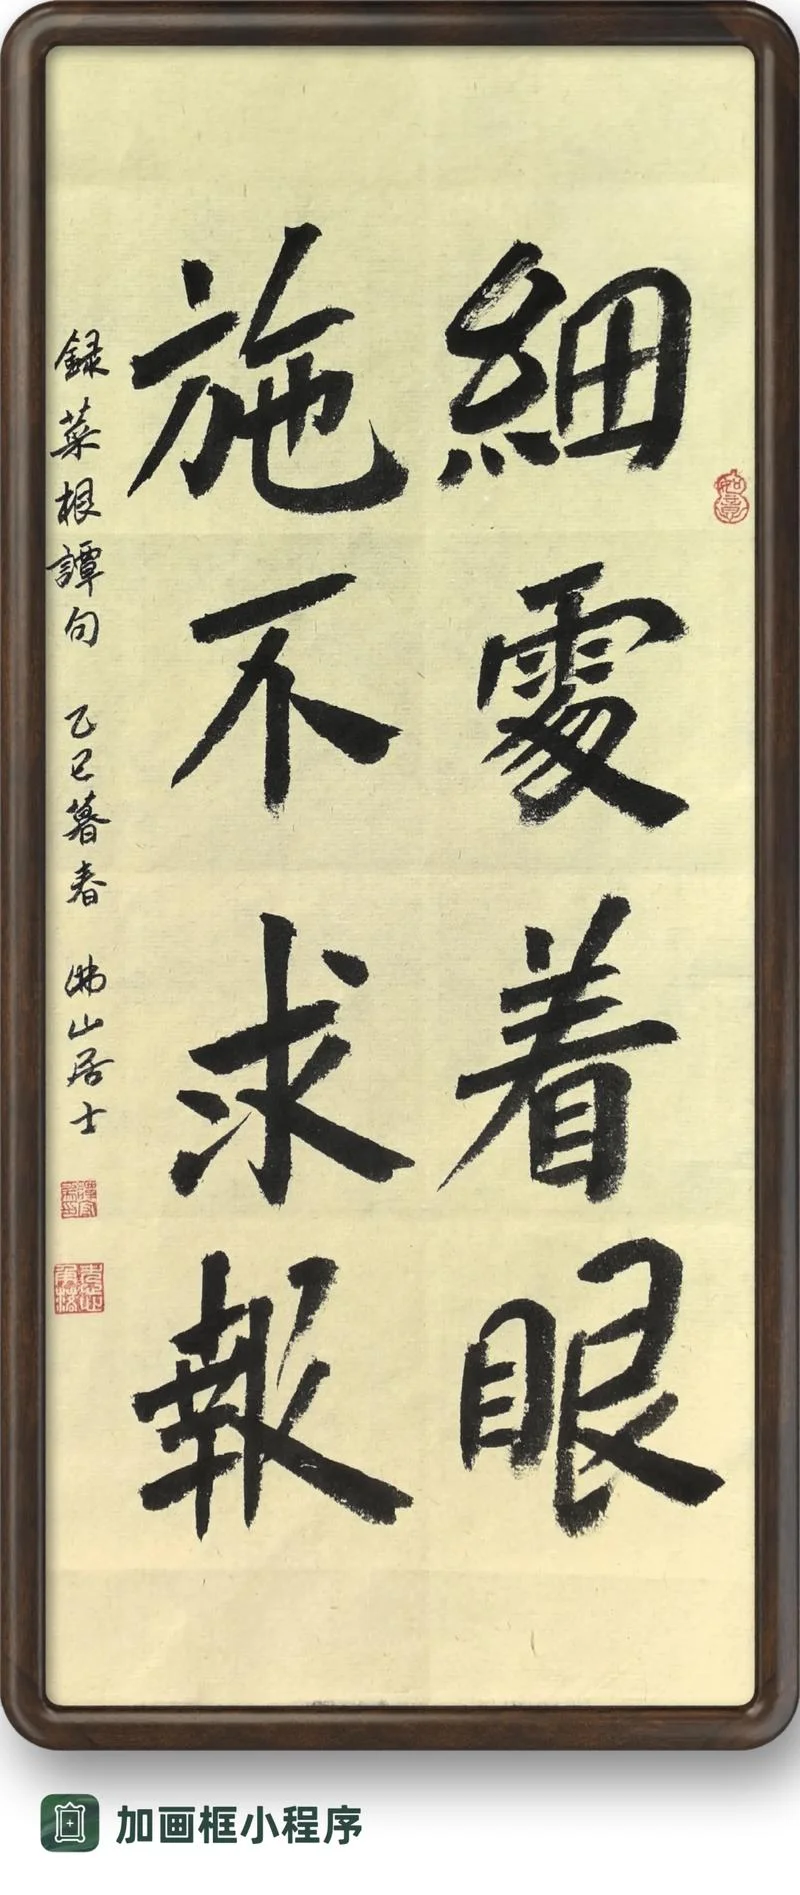 細處着眼
施不求報
録菜根譚句 乙巳暮春 山居士
如意
加画框小程序